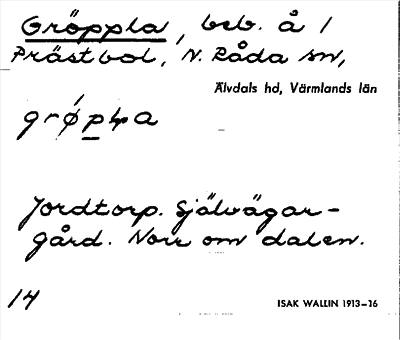 Gröppla, beb. å 1
Prästbol, N. Råda sn,
Älvdals hd, Värmlands län
Jordtorp. Självägar-
gård. Norr om dalen.
14
ISAK WALLIN 1913–16